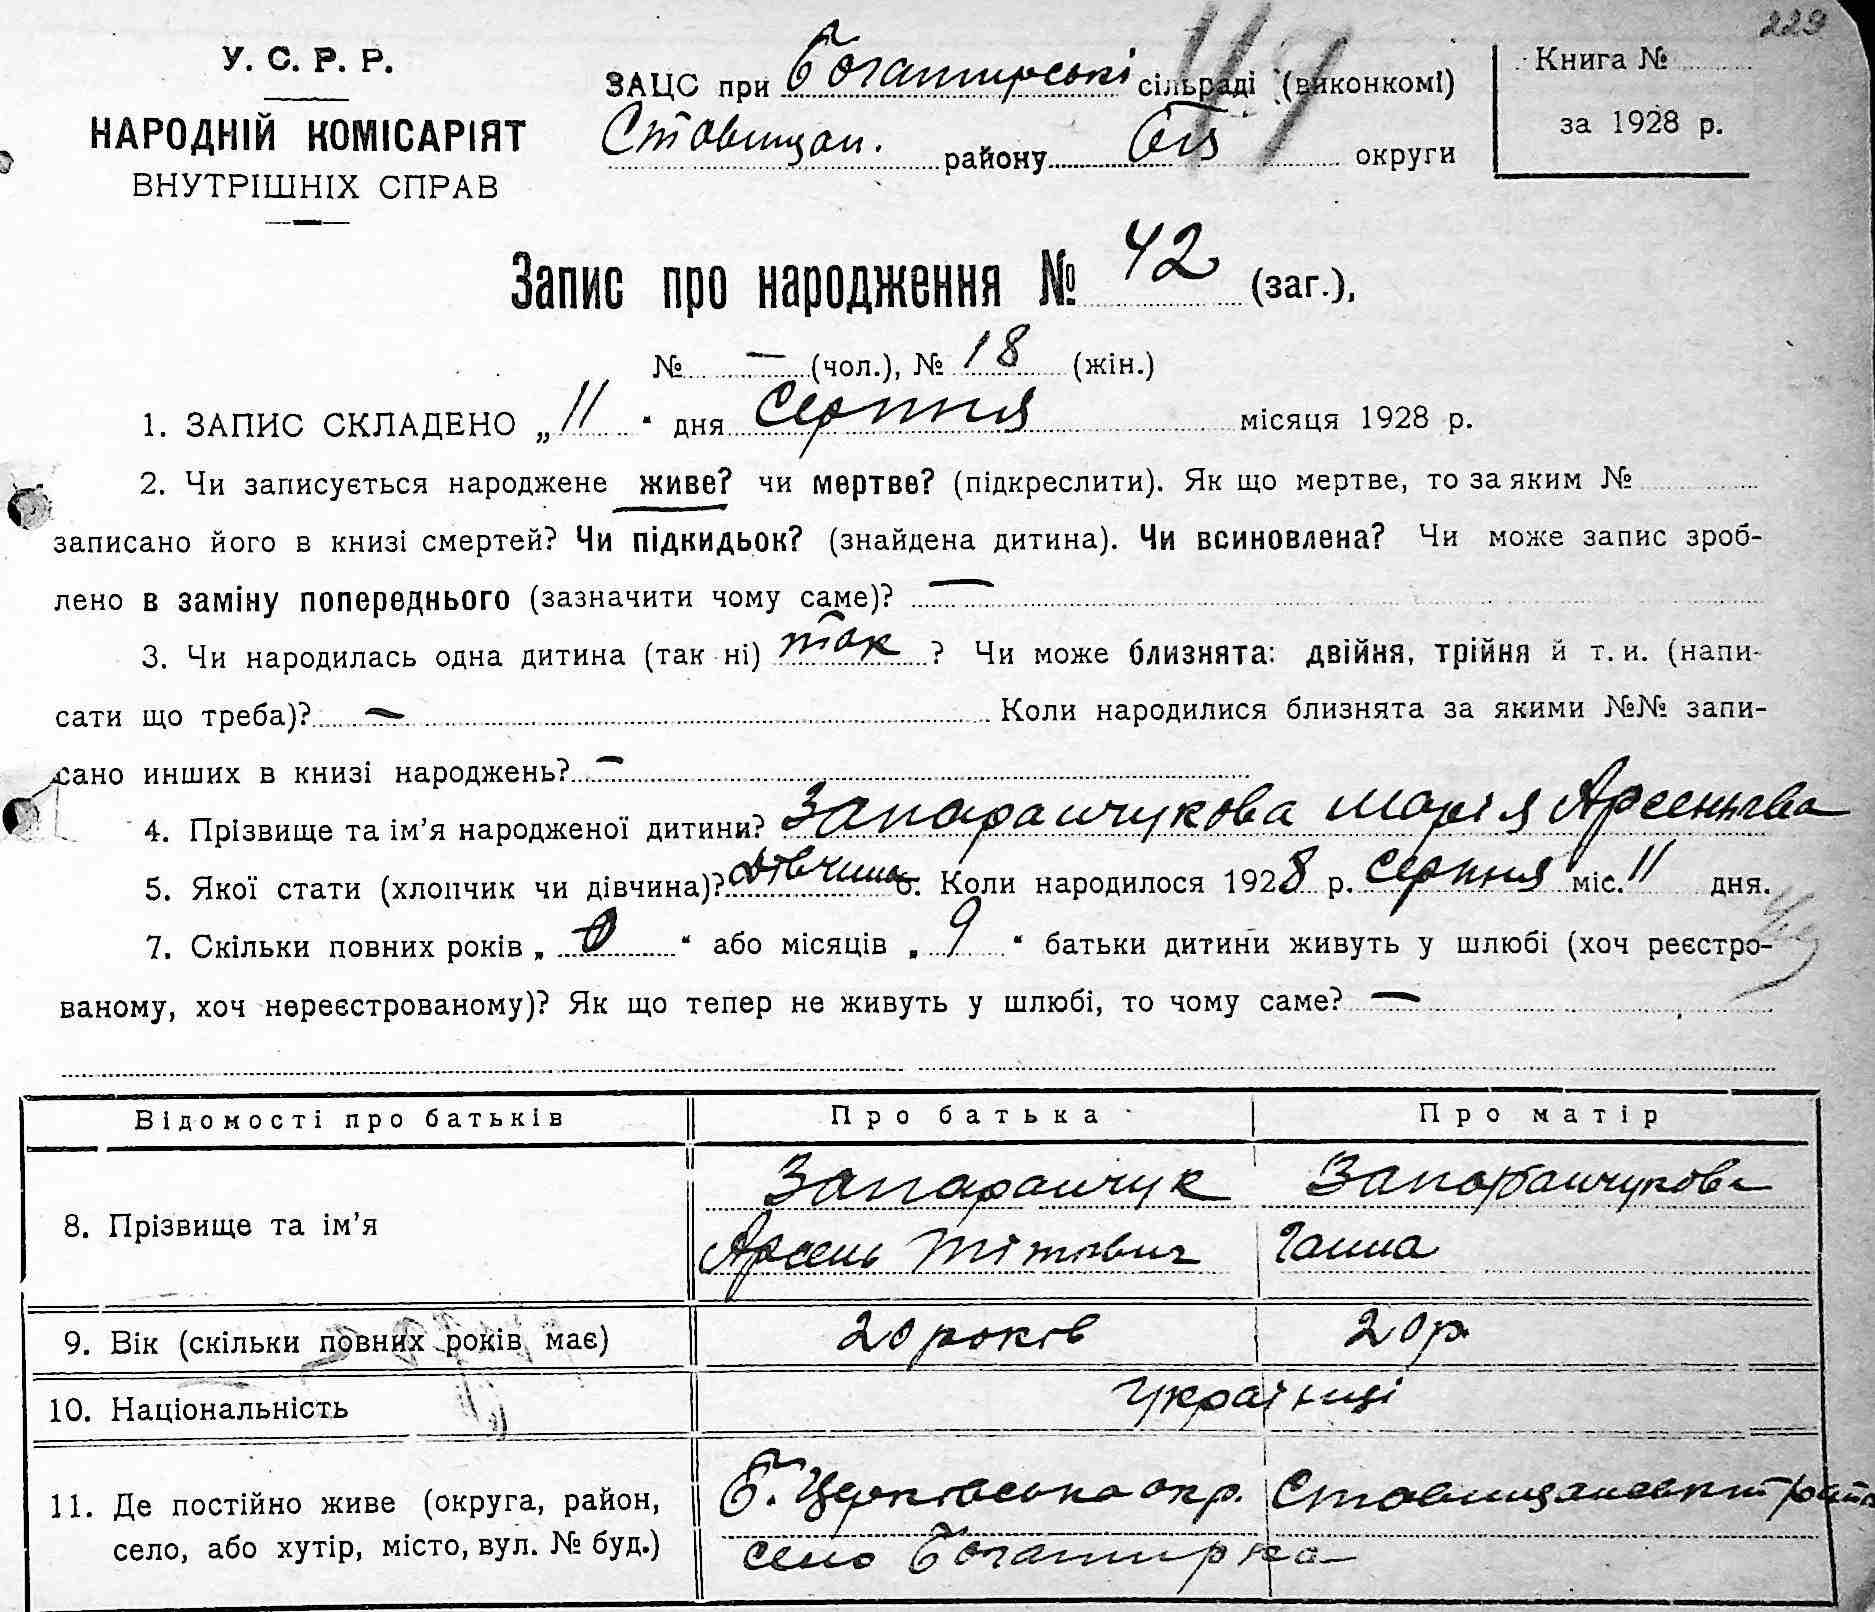 229
У. С. Р. Р.
НАРОДНІЙ КОМІСАРІЯТ
ВНУТРІШНІХ СПРАВ
ЗАЦС при Богатирські сільраді (виконкомі)
Ставищан. району БЦ округи
Книга №
за 1928 р.
Запис про народження № 42 (заг.),
№ — (чол.), № 18 (жін.)
1. ЗАПИС СКЛАДЕНО „11“ дня серпня місяця 1928 р.
2. Чи записується народжене живе? чи мертве? (підкреслити). Як що мертве, то за яким №
записано його в книзі смертей? Чи підкидьок? (знайдена дитина). Чи всиновлена? Чи може запис зроб-
лено в заміну попереднього (зазначити чому саме)? —
3. Чи народилась одна дитина (так ні) так? Чи може близнята: двійня, трійня й т. и. (напи-
сати що треба)? — Коли народилися близнята за якими №№ запи-
сано инших в книзі народжень? —
4. Прізвище та ім’я народженої дитини? Запаранчукова Марія Арсентьева
5. Якої стати (хлопчик чи дівчина)? дівчина 6. Коли народилося 1928 р. серпня міс. 11 дня.
7. Скільки повних років „0“ або місяців „9“ батьки дитини живуть у шлюбі (хоч реєстро-
ваному, хоч нереєстрованому)? Як що тепер не живуть у шлюбі, то чому саме? —
Відомості про батьків Про батька Про матір
8. Прізвище та ім’я Запаранчук Запаранчукова
Арсень Тітович Ганна
9. Вік (скільки повних років має) 20 років 20 р.
10. Національність Українці
11. Де постійно живе (округа, район, Б. Церківська окр. Ставищанський район
село, або хутір, місто, вул. № буд.) село Богатирка